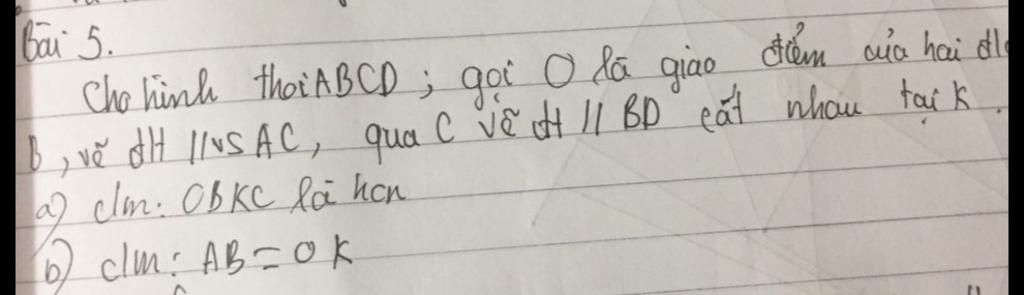 Bài 5.
Cho hình thoi ABCD; gọi O là giao điểm của hai
B, vẽ đt // vs AC, qua C vẽ đt // BD cắt nhau tại K.
a) c/m: OBKC là hcn
b) c/m: AB = OK